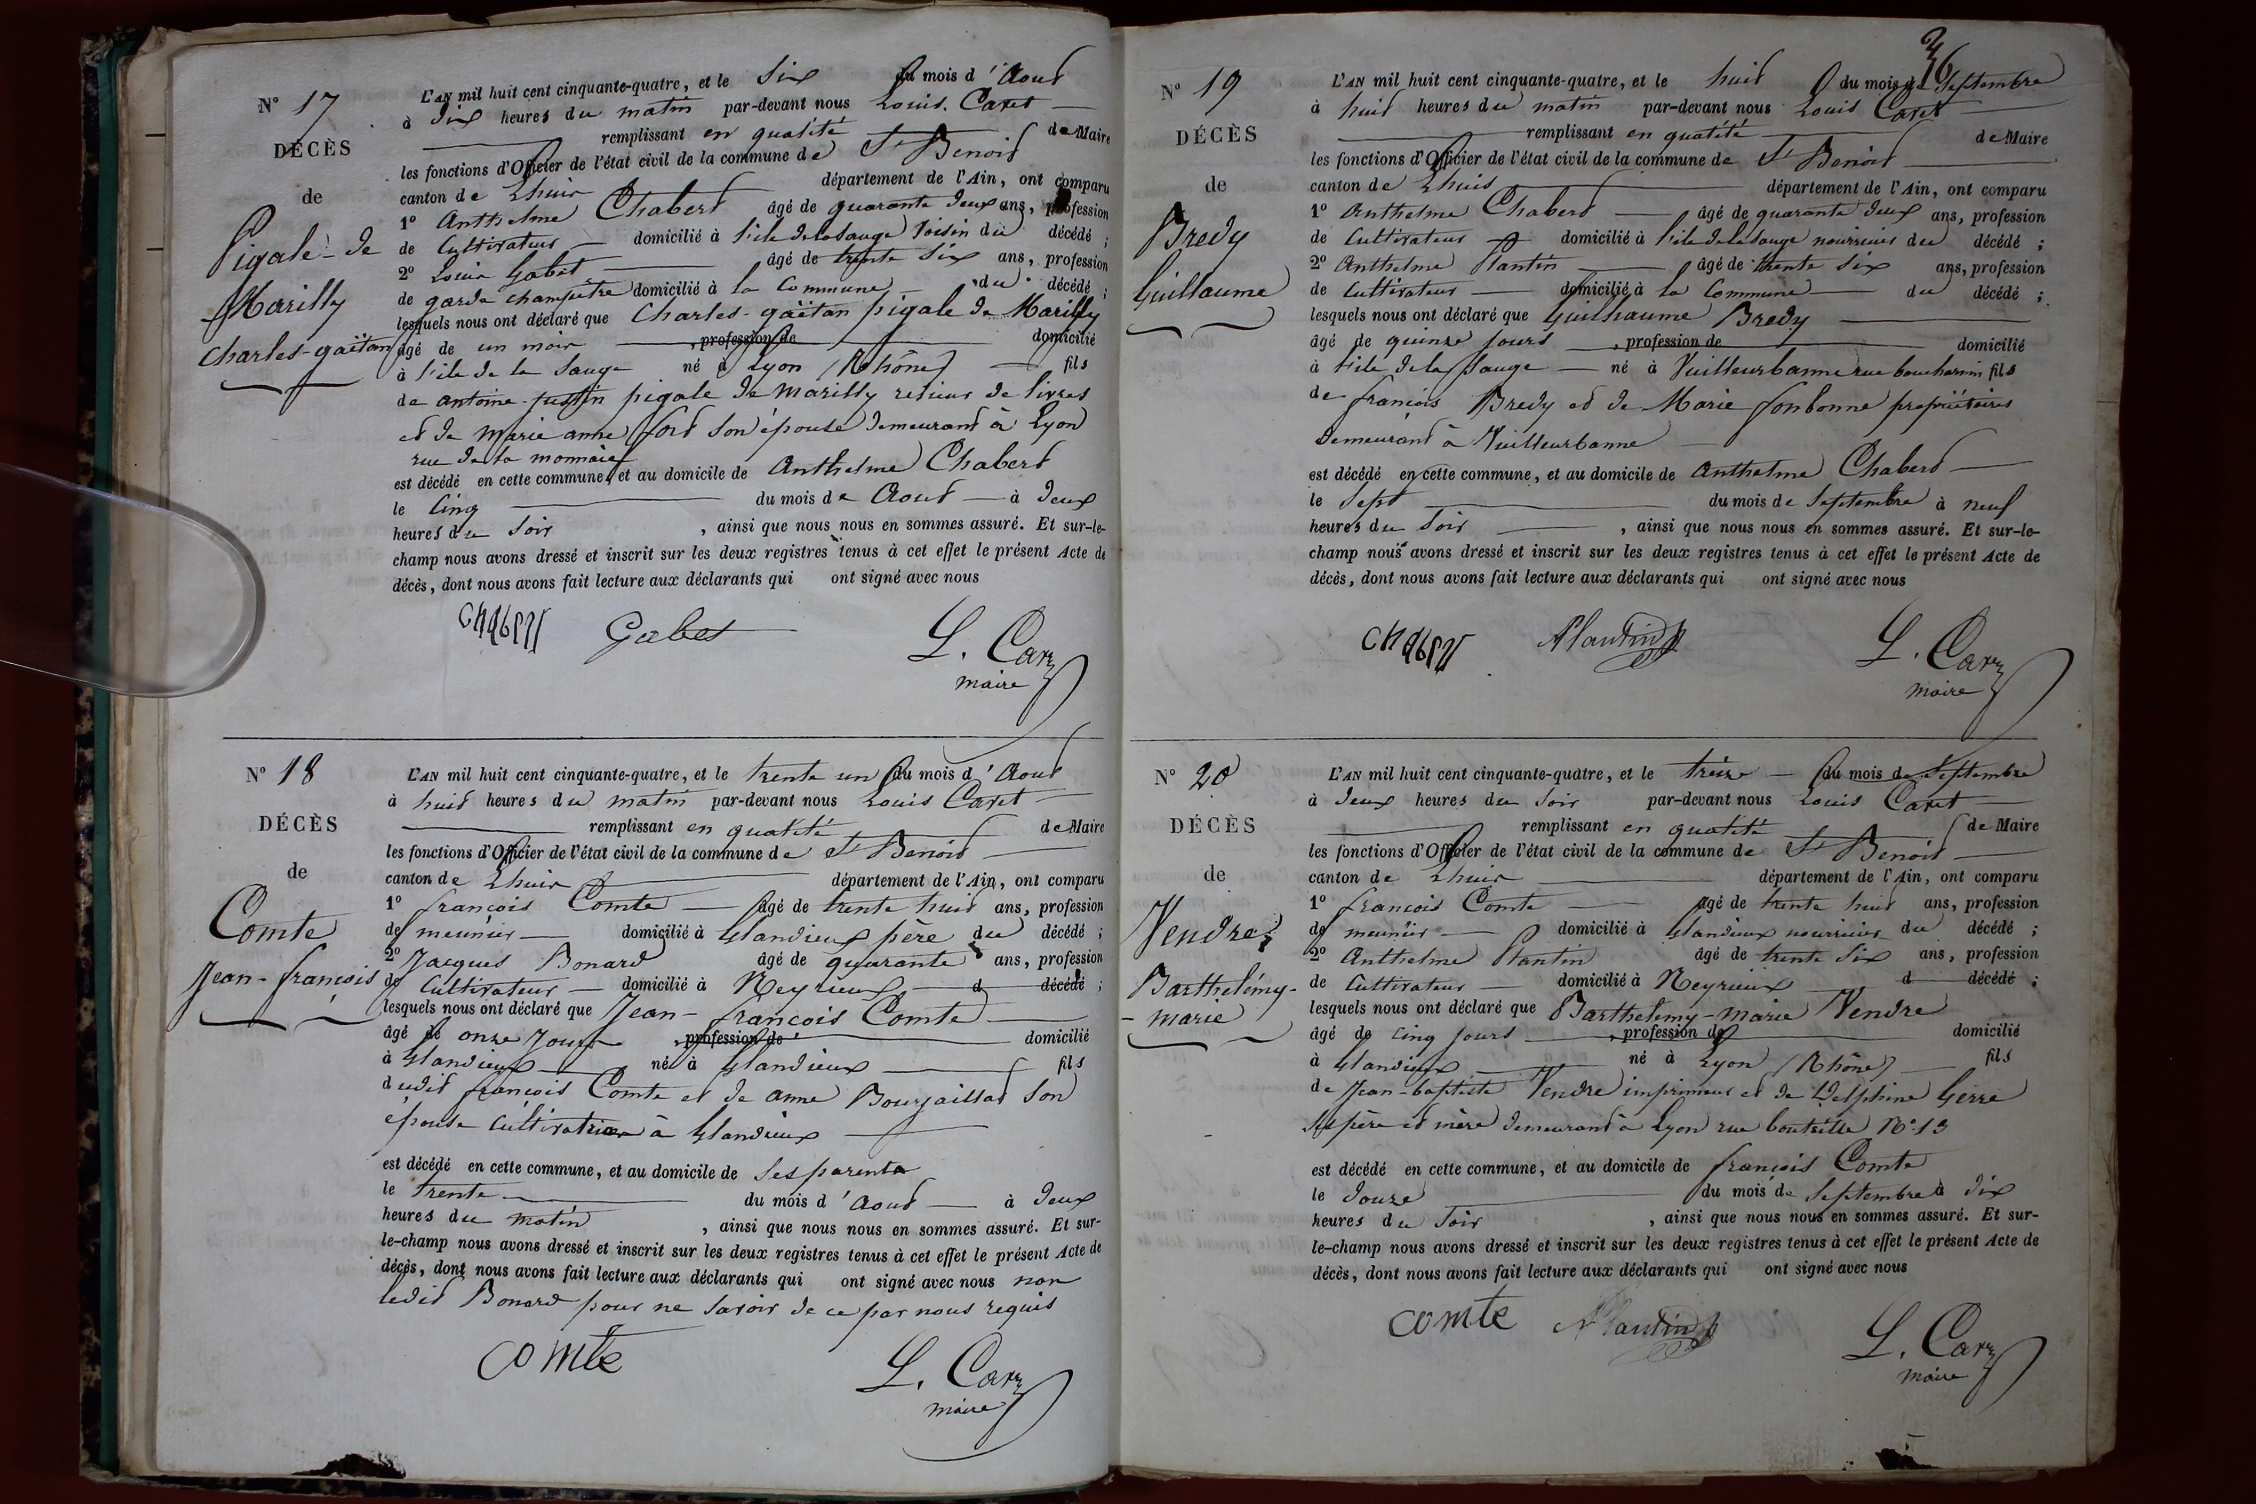 N° 17
DÉCÈS
de
Pigale de
Marilly
Charles-gaëtan
L'AN mil huit cent cinquante-quatre, et le Six du mois d'Aout
à dix heures du matin par-devant nous Louis Caret
remplissant en qualité de Maire
les fonctions d'Officier de l'état civil de la commune de St Benoit
canton de Lhuis département de l'Ain, ont comparu
1° Anthelme Chabert âgé de quarante deux ans, profession
de Cultivateur domicilié à l'ile de la Sauge voisin du décédé ;
2° Louis Gabet âgé de trente six ans, profession
de garde champêtre domicilié à la Commune du décédé ;
lesquels nous ont déclaré que Charles-gaëtan pigale de Marilly
âgé de un mois , profession de domicilié
à l'ile de la Sauge né à Lyon (Rhône) fils
de antoine-justin pigale de marilly relieur de livres
et de marie anne fort son épouse demeurant à Lyon
rue de la monnaie
est décédé en cette commune, et au domicile de Anthelme Chabert
le Cinq du mois de Aout à deux
heures du Soir , ainsi que nous nous en sommes assuré. Et sur-le-
champ nous avons dressé et inscrit sur les deux registres tenus à cet effet le présent Acte de
décès, dont nous avons fait lecture aux déclarants qui ont signé avec nous
Chabert Gabet L. Caret
maire
N° 18
DÉCÈS
de
Comte
Jean-françois
L'AN mil huit cent cinquante-quatre, et le trente un du mois d'Aout
à huit heures du matin par-devant nous Louis Caret
remplissant en qualité de Maire
les fonctions d'Officier de l'état civil de la commune de St Benoit
canton de Lhuis département de l'Ain, ont comparu
1° françois Comte âgé de trente huit ans, profession
de meunier domicilié à Glandieux père du décédé ;
2° Jacques Bonard âgé de quarante ans, profession
de Cultivateur domicilié à Neyrieux d décédé ;
lesquels nous ont déclaré que Jean-françois Comte
âgé de onze Jours profession de domicilié
à Glandieux né à Glandieux fils
dudit françois Comte et de anne Bourjaillat Son
épouse Cultivatrice à Glandieux
est décédé en cette commune, et au domicile de Ses parents
le trente du mois d'Aout à deux
heures du matin , ainsi que nous nous en sommes assuré. Et sur-
le-champ nous avons dressé et inscrit sur les deux registres tenus à cet effet le présent Acte de
décès, dont nous avons fait lecture aux déclarants qui ont signé avec nous non
ledit Bonard pour ne savoir de ce par nous requis
comte L. Caret
maire
36
N° 19
DÉCÈS
de
Bredy
Guillaume
L'AN mil huit cent cinquante-quatre, et le huit du mois de Septembre
à huit heures du matin par-devant nous Louis Caret
remplissant en qualité de Maire
les fonctions d'Officier de l'état civil de la commune de St Benoit
canton de Lhuis département de l'Ain, ont comparu
1° Anthelme Chabert âgé de quarante deux ans, profession
de Cultivateur domicilié à l'ile de la Sauge nourricier du décédé ;
2° Anthelme Plantin âgé de trente six ans, profession
de Cultivateur domicilié à la Commune du décédé ;
lesquels nous ont déclaré que Guilhaume Bredy
âgé de quinze jours , profession de domicilié
à l'ile de la Sauge né à Vuilleurbanne rue boucharnin fils
de françois Bredy et de Marie fonbonne propriétaires
demeurant à Vuilleurbanne
est décédé en cette commune, et au domicile de Anthelme Chabert
le Sept du mois de Septembre à neuf
heures du Soir , ainsi que nous nous en sommes assuré. Et sur-le-
champ nous avons dressé et inscrit sur les deux registres tenus à cet effet le présent Acte de
décès, dont nous avons fait lecture aux déclarants qui ont signé avec nous
Chabert Plantin L. Caret
maire
N° 20
DÉCÈS
de
Vendre
Barthelémy-
-marie
L'AN mil huit cent cinquante-quatre, et le treize du mois de Septembre
à deux heures du Soir par-devant nous Louis Caret
remplissant en qualité de Maire
les fonctions d'Officier de l'état civil de la commune de St Benoit
canton de Lhuis département de l'Ain, ont comparu
1° françois Comte âgé de trente huit ans, profession
de meunier domicilié à Glandieux nourricier du décédé ;
2° Anthelme Plantin âgé de trente Six ans, profession
de Cultivateur domicilié à Neyrieux d décédé ;
lesquels nous ont déclaré que Barthelemy-marie Vendre
âgé de cinq jours , profession de domicilié
à Glandieux né à Lyon (Rhône) fils
de Jean-baptiste Vendre imprimeur et de Delphine Gerre
Ses père et mère demeurant à Lyon rue bouteille N° 13
est décédé en cette commune, et au domicile de françois Comte
le douze du mois de Septembre à dix
heures du Soir , ainsi que nous nous en sommes assuré. Et sur-
le-champ nous avons dressé et inscrit sur les deux registres tenus à cet effet le présent Acte de
décès, dont nous avons fait lecture aux déclarants qui ont signé avec nous
comte Plantin L. Caret
maire